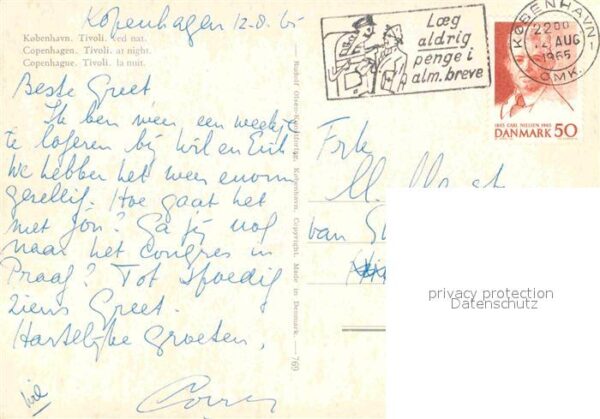 Kopenhagen 12-8. 65
København. Tivoli. ved nat.
Copenhagen. Tivoli. at night.
Copenhague. Tivoli. la nuit.
Beste Greet
Ik ben weer een weekje
te logeren bij Wil en Erik
We hebben het weer enorm
gezellig. Hoe gaat het
met jou? Ga jij nog
naar het Congres in
Praag? Tot spoedig
ziens Greet.
Hartelijke groeten,
Rudolf Olsens Kunstforlag. København. Copyright. Made in Denmark. — 769
Læg
aldrig
penge i
alm. breve
KØBENHAVN
2200
12 AUG
1965
OMK.
1865 CARL NIELSEN 1965
DANMARK 50
Frk
van
privacy protection
Datenschutz